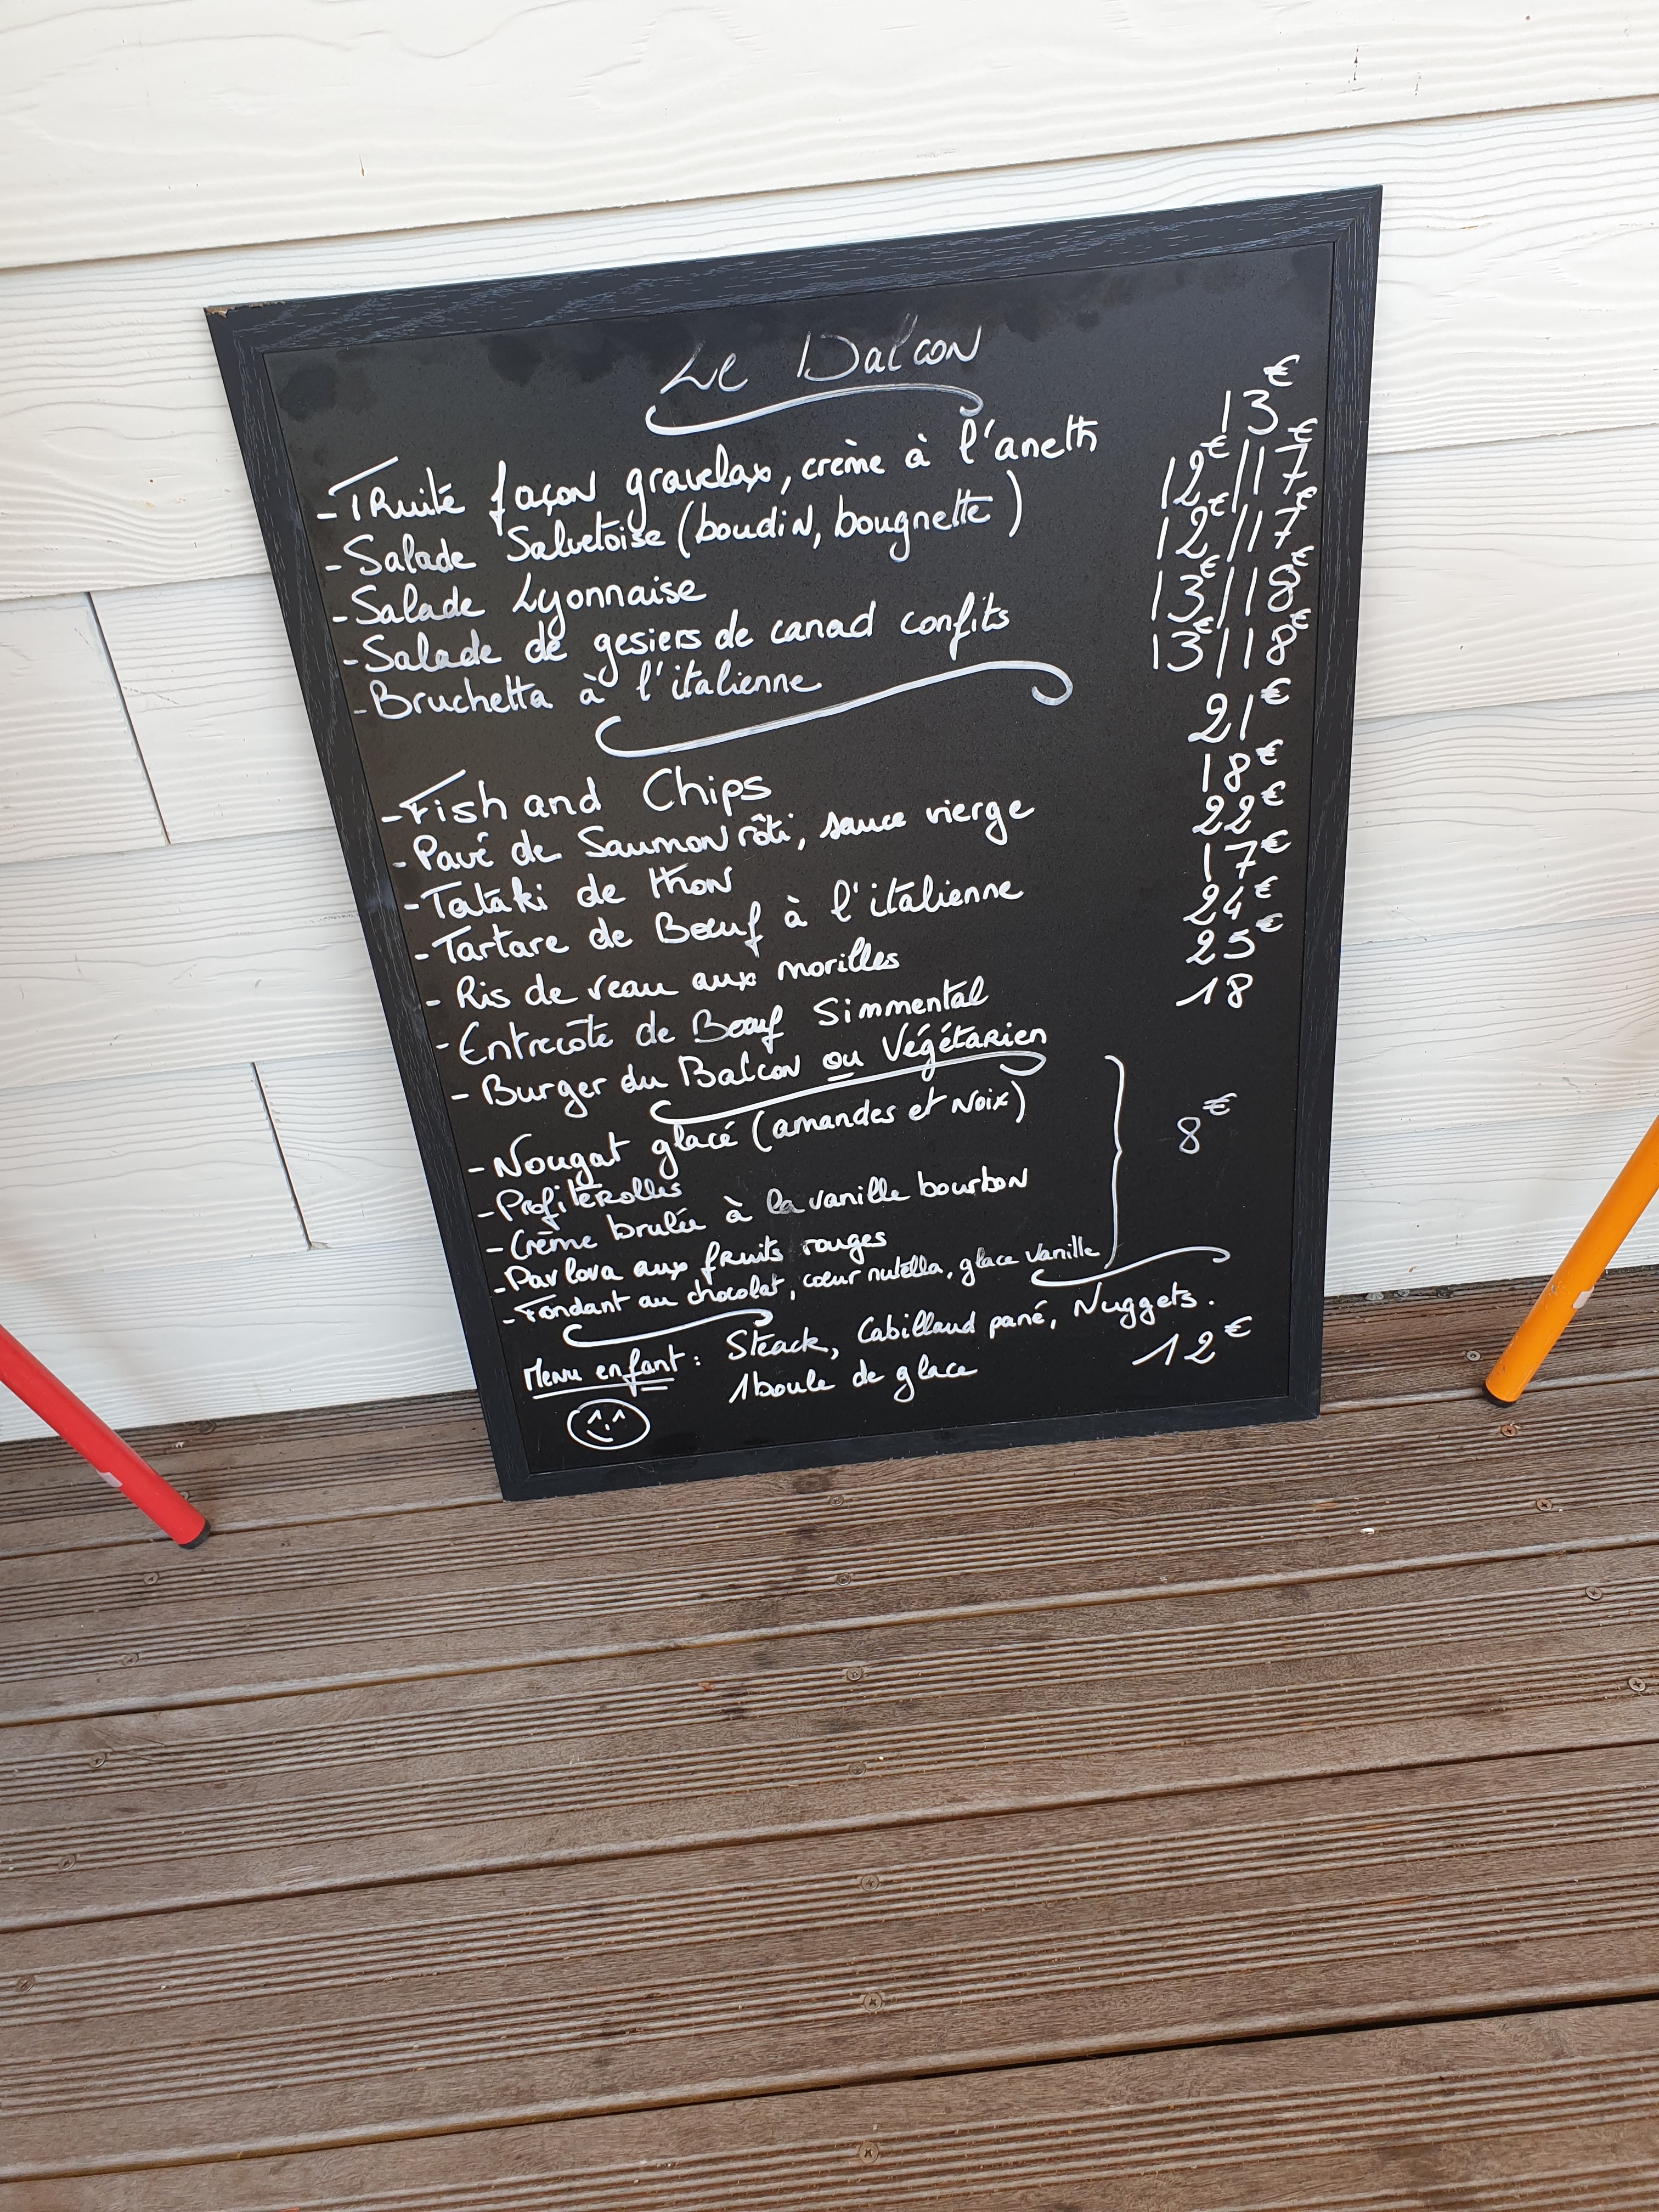 Le Balcon
- Truite façon gravelax, crème à l'aneth 13€
- Salade Salvetoise (boudin, bougnette) 12€/17€
- Salade Lyonnaise 12€/17€
- Salade de gesiers de canad confits 13€/18€
- Bruchetta à l'italienne 13€/18€
- Fish and Chips 21€
- Pavé de Saumon rôti, sauce vierge 18€
- Tataki de thon 22€
- Tartare de Boeuf à l'italienne 17€
- Ris de veau aux morilles 24€
- Entrecôte de Boeuf Simmental 25€
- Burger du Balcon ou Végétarien 18
- Nougat glacé (amandes et Noix)
- Profiterolles
- Crème brulée à la vanille bourbon 8€
- Pavlova aux fruits rouges
- Fondant au chocolat, coeur nutella, glace vanille
Menu enfant : Steack, Cabillaud pané, Nuggets.
1 boule de glace 12€